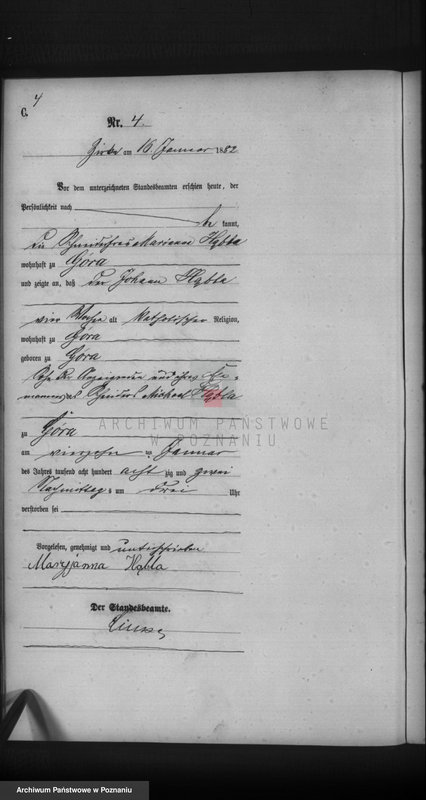 4
C.
Nr. 4.
am 16. Januar 1882
Vor dem unterzeichneten Standesbeamten erschien heute, der
Persönlichkeit nach
kannt,
die Marianna Hąbta
wohnhaft zu Góra
und zeigte an, daß der Johann Hąbta
vier Wochen alt katholischer Religion,
wohnhaft zu Góra
geboren zu Góra
Sohn der Anzeigenden und ihres Ehe-
mannes, des Michael Hąbta
ARCHIWUM PAŃSTWOWE
W POZNANIU
zu Góra
am vierzehn ten Januar
des Jahres tausend acht hundert acht zig und zwei
Nachmittags um drei Uhr
verstorben sei
Vorgelesen, genehmigt und unterschrieben
Maryjanna Hąbta
Der Standesbeamte.
Archiwum Państwowe w Poznaniu